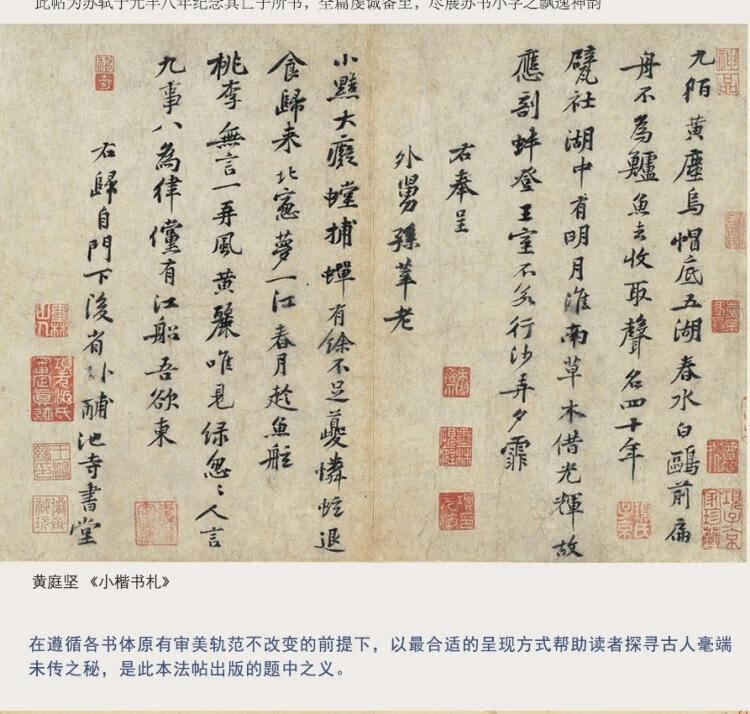 此帖为苏轼于元丰八年纪念其亡子所书，全篇虔诚备至，尽展苏书小字之飘逸神韵
九陌黄塵烏帽底五湖春水白鷗前扁
舟不為鱸魚去收取聲名四十年
甓社湖中有明月淮南草木借光輝故
應剖蚌登王室不若行沙弄夕霏
右奉呈
外舅孫莘老
小黠大癡螳捕蟬有餘不足夔憐蚿退
食歸来北窗夢一江春月趁魚舡
桃李無言一再風黄鸝唯見緑忽〻人言
九事八為律儻有江船吾欲東
右歸自門下後省卧酺池寺書堂
黄庭坚 《小楷书札》
在遵循各书体原有审美轨范不改变的前提下，以最合适的呈现方式帮助读者探寻古人毫端
未传之秘，是此本法帖出版的题中之义。